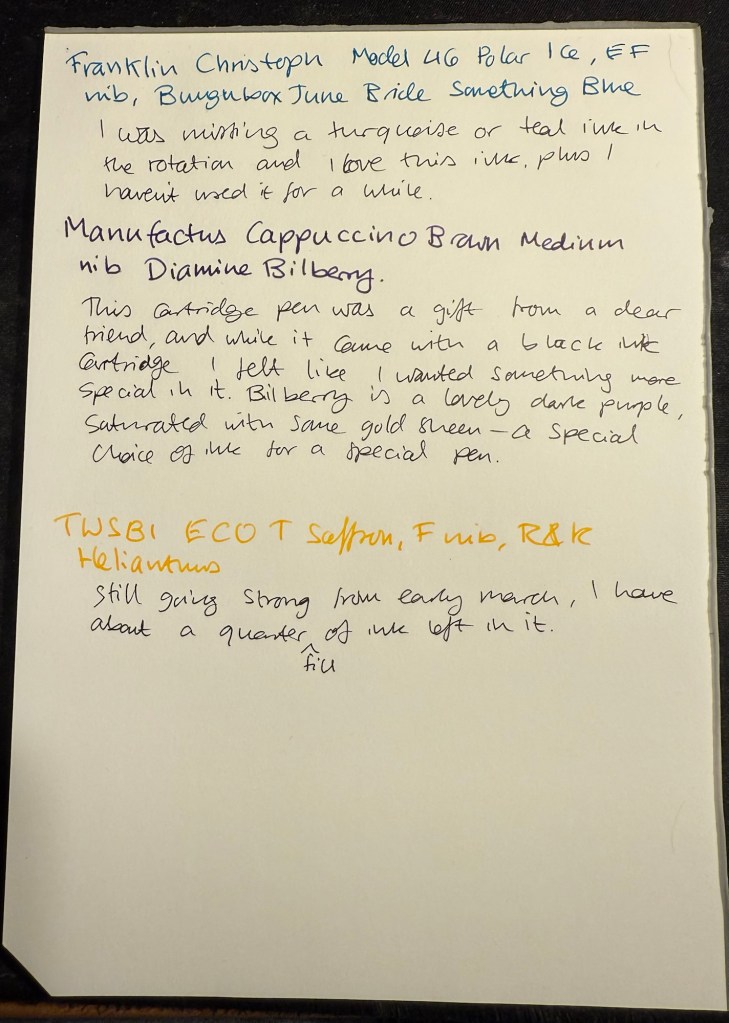 Franklin Christoph Model 46 Polar Ice, EF
nib, Bungubox June Bride Something Blue
I was missing a turquoise or teal ink in
the rotation and I love this ink, plus I
haven't used it for a while.
Manufactus Cappuccino Brown Medium
nib Diamine Bilberry.
This cartridge pen was a gift from a dear
friend, and while it came with a black ink
cartridge I felt like I wanted something more
special in it. Bilberry is a lovely dark purple,
saturated with some gold sheen – a special
choice of ink for a special pen.
TWSBI ECO T Saffron, F nib, R&K
Helianthus
Still going strong from early march, I have
about a quarter of ink left in it.
^
fill